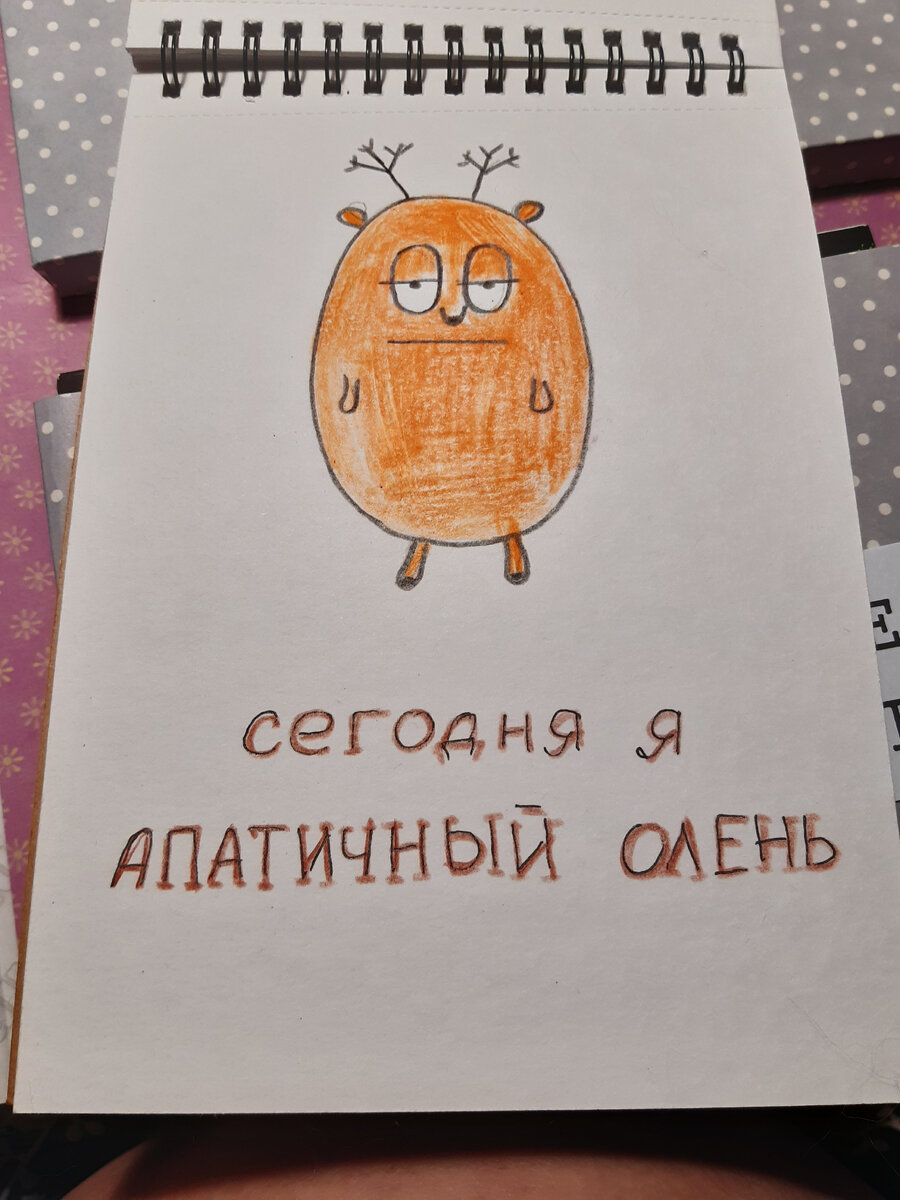 сегодня я
АПАТИЧНЫЙ ОЛЕНЬ